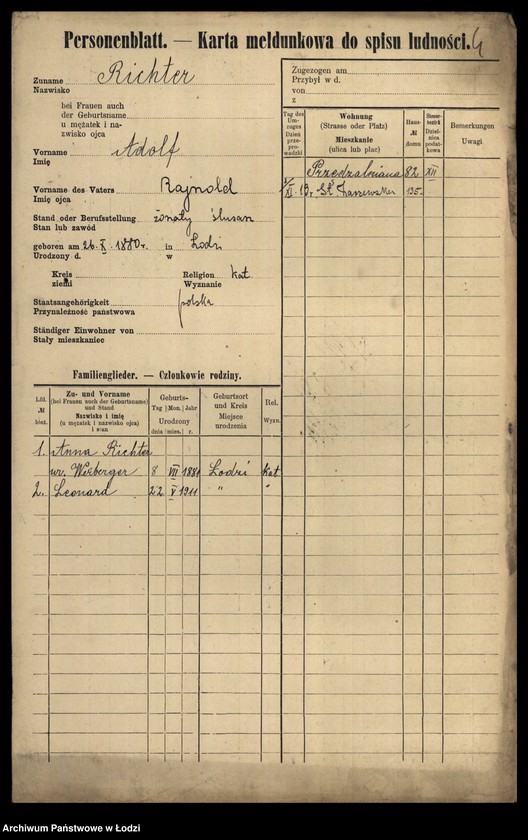 Personenblatt. — Karta meldunkowa do spisu ludności.
Zuname Richter
Nazwisko
bei Frauen auch
der Geburtsname
u mężatek i na-
zwisko ojca
Vorname Adolf
Imię
Vorname des Vaters Rajnold
Imię ojca
Stand oder Berufsstellung żonaty ślusarz
Stan lub zawód
geboren am 26. X. 1880 r. in Łodzi
Urodzony d. w
Kreis Religion kat
ziemi Wyznanie
Staatsangehörigkeit polska
Przynależność państwowa
Ständiger Einwohner von
Stały mieszkaniec
Familienglieder. — Członkowie rodziny.
Lfd. № bież.
Zu- und Vorname
(bei Frauen auch der Geburtsname)
und Stand
Nazwisko i imię
(u mężatek i nazwisko ojca)
i stan
Geburts-
Tag Mon. Jahr
Urodzony
dnia mies. r.
Geburtsort
und Kreis
Miejsce
urodzenia
Rel.
Wyzn.
1. Anna Richter
ur. Werberger 8 VII 1881 Łodzi kat
2. Leonard 22 V 1911 " "
Zugezogen am
Przybył w d.
von
z
Tag des
Um-
zuges
Dzień
prze-
prowadzki
Wohnung
(Strasse oder Platz)
Mieszkanie
(ulica lub plac)
Haus-
№
domu
Steuer-
bezirk
Dziel-
nica
podat-
kowa
Bemerkungen
Uwagi
Przędzalniana 82 XII
XI. 19 r. St. 135.
Archiwum Państwowe w Łodzi